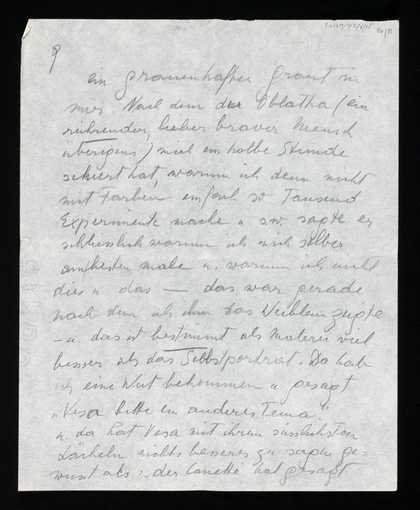 9
ein grauenhafter Grant in
mir. Nach dem der Oblatha (ein
rührender, lieber braver Mensch
übrigens) mich ein halbe Stunde
sekiert hat, warum ich denn nicht
mit Farben einfach so Tausend
Experimente mache u. sw. sagte er
schliesslich warum ich mich selber
am besten male u. warum ich nicht
dies u das — das war gerade
nach dem ich ihm das Weiblein zeigte
– u. das ist bestimmt als Malerei viel
besser als das Selbstportrait. Da hab
ich eine Wut bekommen u gesagt
„Vesa bitte ein anderes Tema."
u. da hat Vesa mit ihrem süsslichsten
Lächeln nichts besseres zu sagen ge-
wusst als: „der Canetti hat gesagt